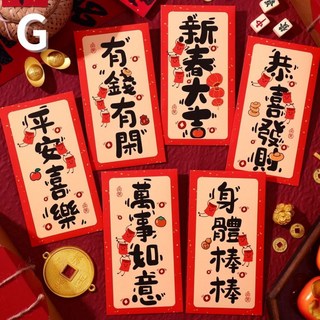 G
有錢有閑
新春大吉
恭喜發財
平安喜樂
萬事如意
身體棒棒